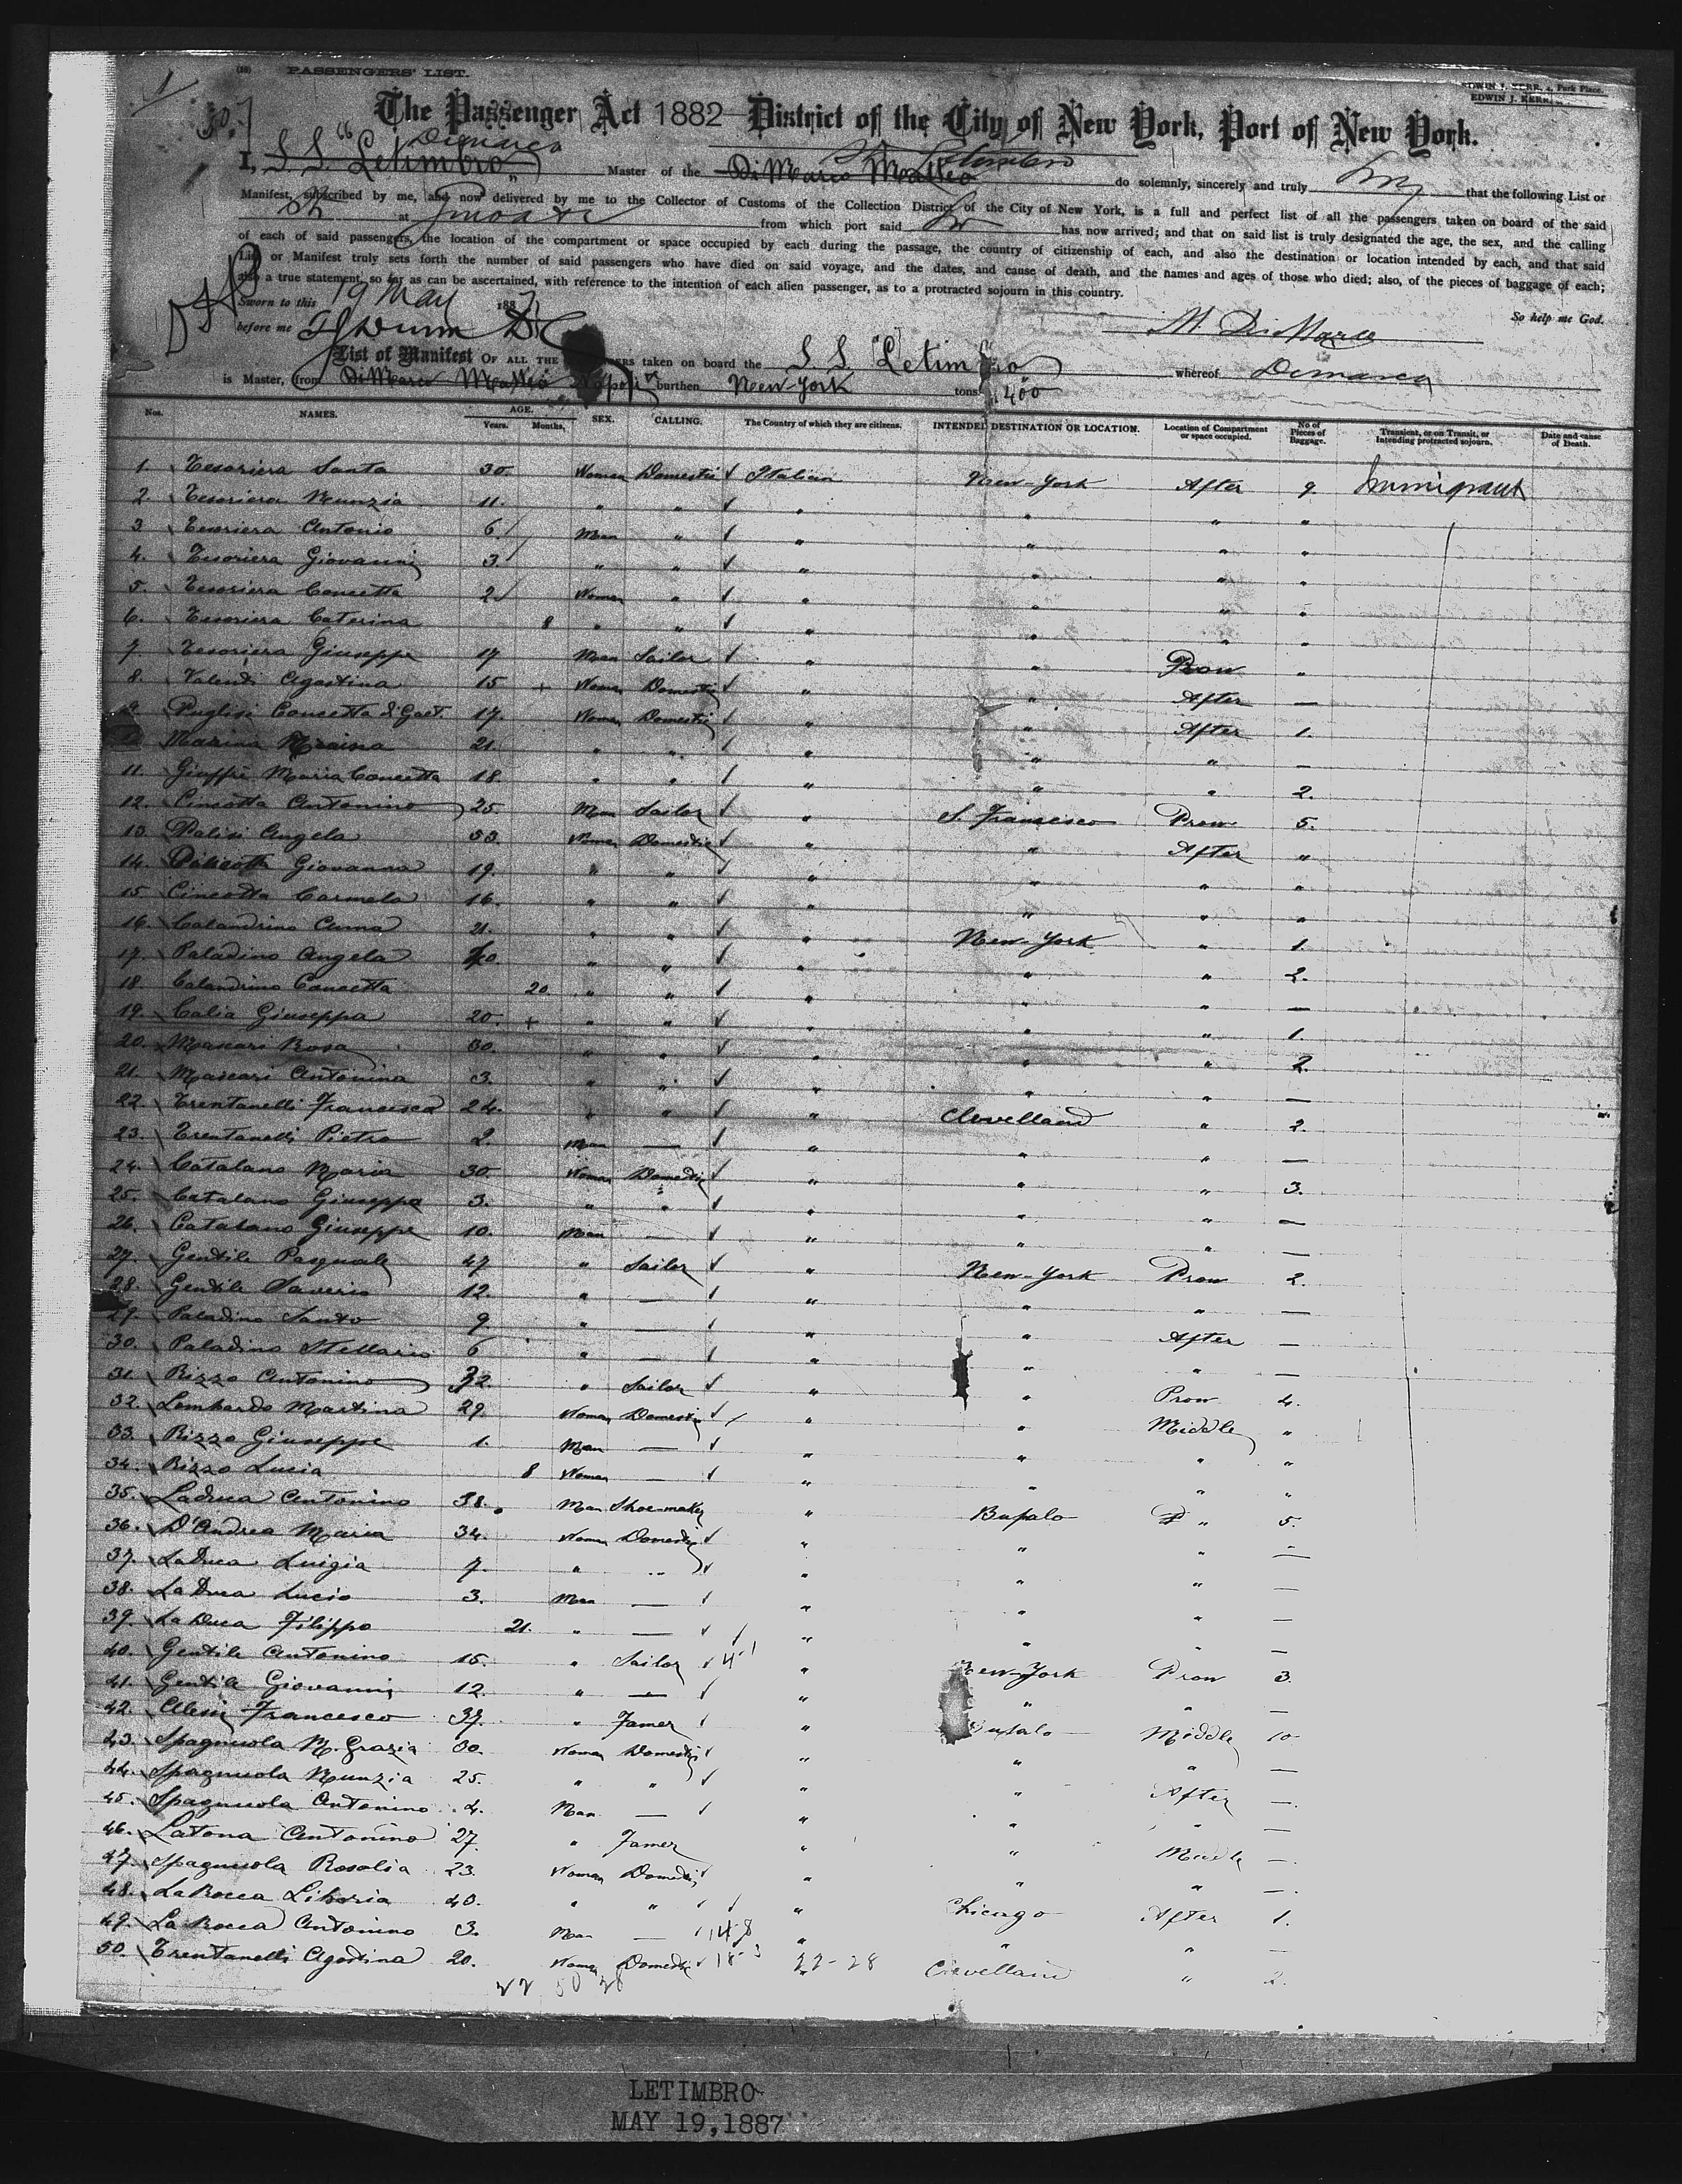 1
(18) PASSENGERS' LIST.
EDWIN J. KERR, Park Place.
EDWIN J. KERR
The Passenger Act 1882 District of the City of New York, Port of New York.
I, S. S. "Letimbro" Demarco Master of the Di Marco Matteo SS Letimbro do solemnly, sincerely and truly that the following List or
Manifest, subscribed by me, and now delivered by me to the Collector of Customs of the Collection District of the City of New York, is a full and perfect list of all the passengers taken on board of the said
at Genoa &c from which port said has now arrived; and that on said list is truly designated the age, the sex, and the calling
of each of said passengers, the location of the compartment or space occupied by each during the passage, the country of citizenship of each, and also the destination or location intended by each, and that said
List or Manifest truly sets forth the number of said passengers who have died on said voyage, and the dates, and cause of death, and the names and ages of those who died; also, of the pieces of baggage of each;
also a true statement, so far as can be ascertained, with reference to the intention of each alien passenger, as to a protracted sojourn in this country.
Sworn to this 19 May 1887
So help me God.
before me
M. Di Marco
List of Manifest OF ALL THE PASSENGERS taken on board the S. S. "Letimbro" whereof Demarco
is Master, from Di Marco Matteo Napoli burthen New-York tons 1400
Nos. NAMES. AGE. Years. Months. SEX. CALLING. The Country of which they are citizens. INTENDED DESTINATION OR LOCATION. Location of Compartment or space occupied. No of Pieces of Baggage. Transient, or on Transit, or Intending protracted sojourn. Date and cause of Death.
1. Tesoriera Santa 30. Woman Domestic √ Italian New-York After 9. Immigrant
2. Tesoriera Nunzia 11. " " √ " " " "
3. Tesoriera Antonio 6. Man " √ " " " "
4. Tesoriera Giovanni 3. " " √ " " " "
5. Tesoriera Concetta 2 Woman " √ " " " "
6. Tesoriera Caterina 8 " " √ " " " "
7. Tesoriera Giuseppe 17 Man Sailor √ " " Prow "
8. Valenti Agostina 15 + Woman Domestic √ " " After —
9. Puglisi Concetta di Gaet. 17. Woman Domestic √ " " After 1.
Marina 21. " " √ " " " —
11. Giuffrè Maria Concetta 18. " " √ " " " 2.
12. Cincotta Antonino 25. Man Sailor √ " S. Francisco Prow 5.
13. Palisi Angela 53. Woman Domestic √ " " After "
14. Giovanna 19. " " √ " " " "
15. Cincotta Carmela 16. " " √ " " " "
16. Calandrino Anna 21. " " √ " New-York " 1.
17. Paladino Angela 40. " " √ " " " 2.
18. Calandrino Concetta 20. " " √ " " " —
19. Calia Giuseppa 20. + " " √ " " " 1.
20. Mascari Rosa 30. " " √ " " " 2.
21. Mascari Antonina 3. " " √ " " " —
22. Trentanelli Francesca 24. " " √ " Clevelland " 2.
23. Trentanelli Pietro 2. Man — √ " " " —
24. Catalano Maria 30. Woman Domestic √ " " " 3.
25. Catalano Giuseppa 3. " " √ " " " —
26. Catalano Giuseppe 10. Man — √ " " " —
27. Gentile Pasquale 47 " Sailor √ " New-York Prow 2.
28. Gentile Saverio 12. " — √ " " " —
29. Paladino Santo 9. " — √ " " After —
30. Paladino Stellario 6 " — √ " " " —
31. Rizzo Antonino 32. " Sailor √ " " Prow 4.
32. Lombardo Martina 29. Woman Domestic √ " " Middle "
33. Rizzo Giuseppe 1. Man — √ " " " "
34. Rizzo Lucia 8 Woman — √ " " " "
35. Laduca Antonino 38. Man Shoe-maker " Bufalo " 5.
36. D'Andrea Maria 34. Woman Domestic √ " " " —
37. La Duca Luigia 7. " " √ " " " —
38. La Duca Lucio 3. Man — √ " " " —
39. La Duca Filippo 21. " — √ " " " —
40. Gentile Antonino 15. " Sailor √ " New-York Prow 3.
41. Gentile Giovanni 12. " — √ " " " —
42. Francesco 37. " Famer √ " Bufalo Middle 10
43. Spagnuola M. Grazia 30. Woman Domestic √ " " " —
44. Spagnuola Nunzia 25. " " √ " " After —
45. Spagnuola Antonino 4. Man — √ " " " —
46. Latona Antonino 27. " Famer " " Middle —
47. Spagnuola Rosolia 23. Woman Domestic √ " " " —
48. La Rocca Liboria 40. " " √ " Chicago After 1.
49. La Rocca Antonino 3. Man — √ " " " —
50. Trentanelli Agostina 20. Woman Domestic √ 22-28 Clevelland " 2.
22 50 28
LETIMBRO
MAY 19,1887